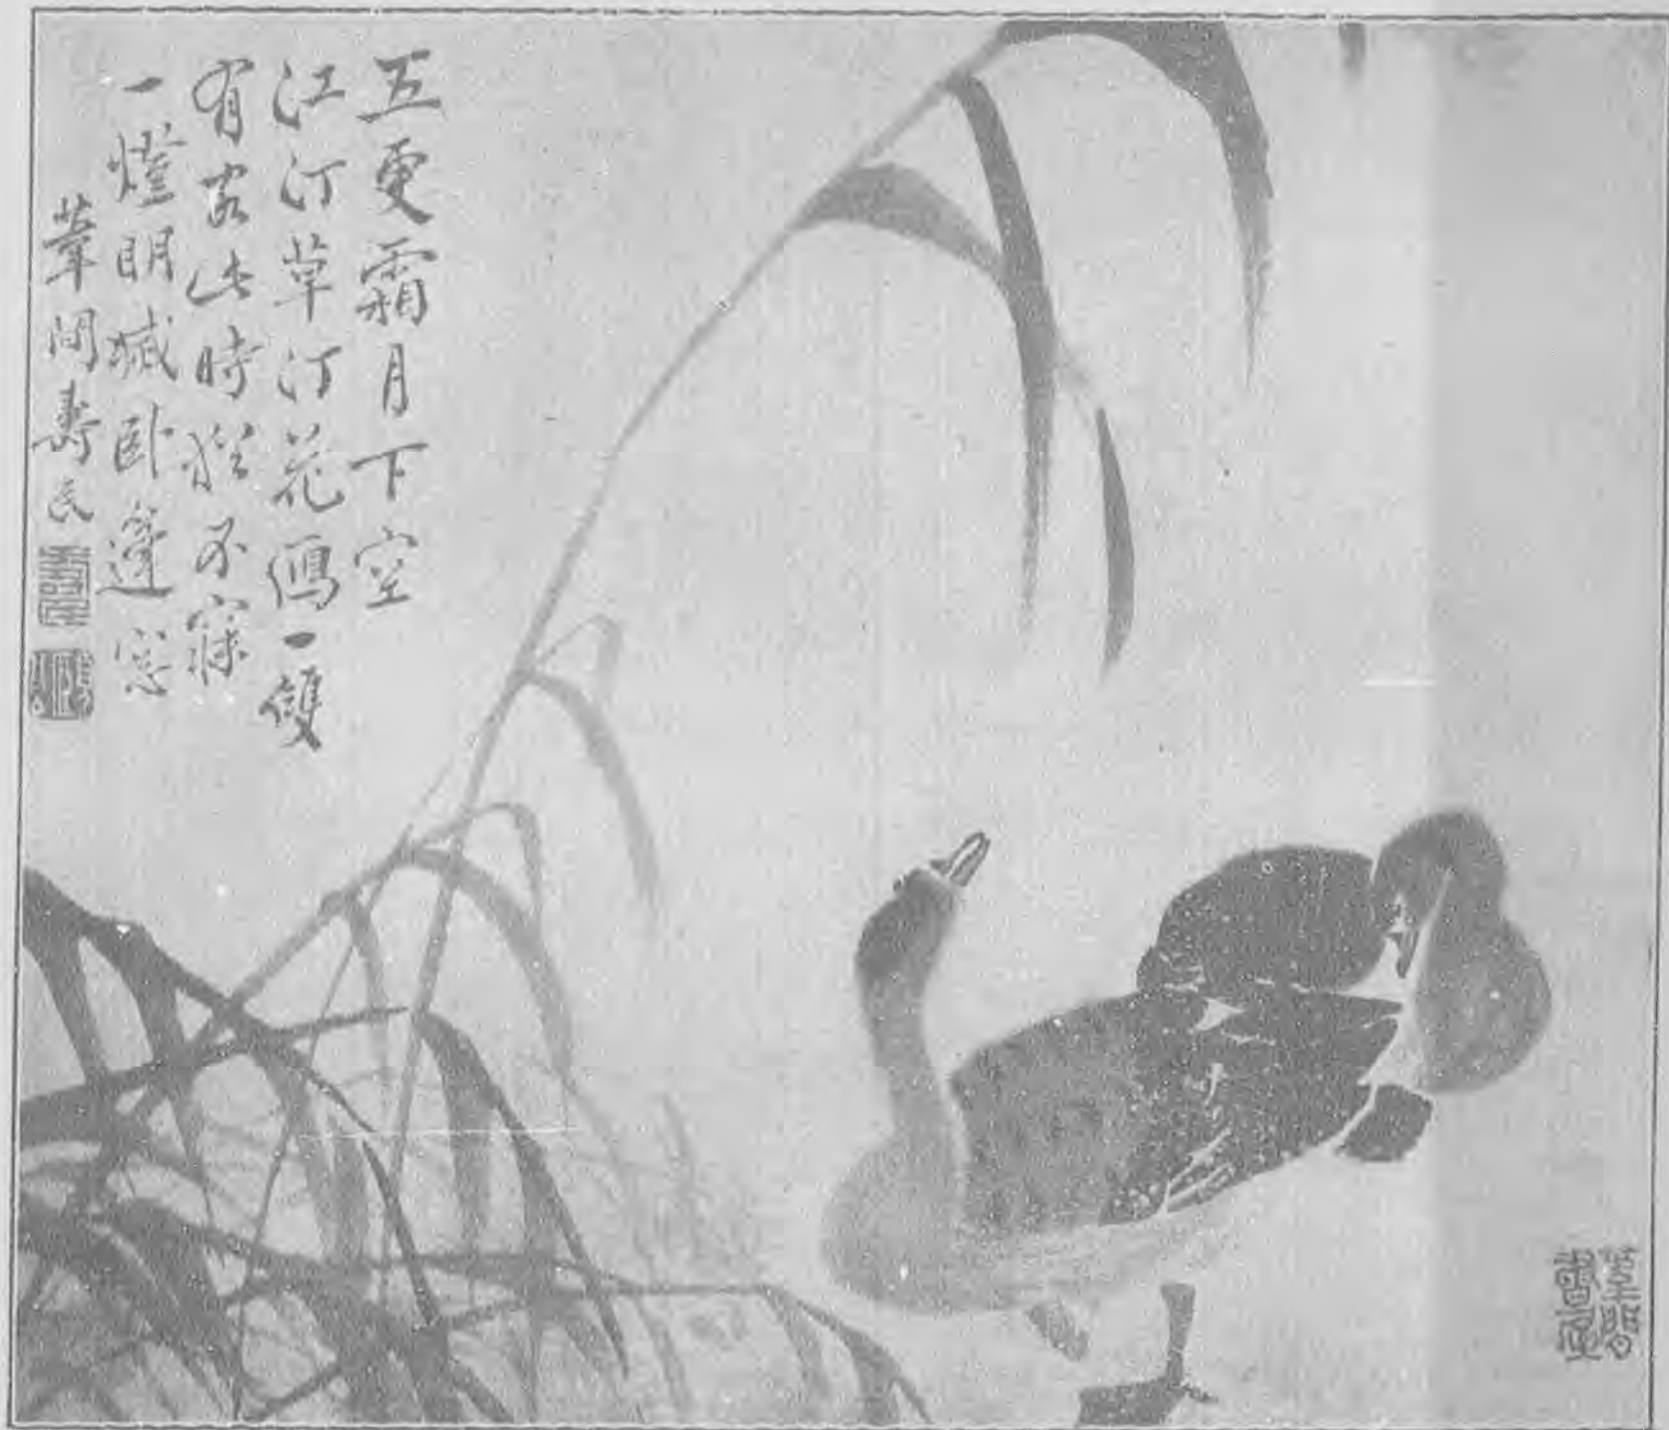 五更霜月下空
江汀草汀花鴈一雙
有客此時猶不寐
一燈明滅卧篷窓
葦間壽民
壽民
葦間